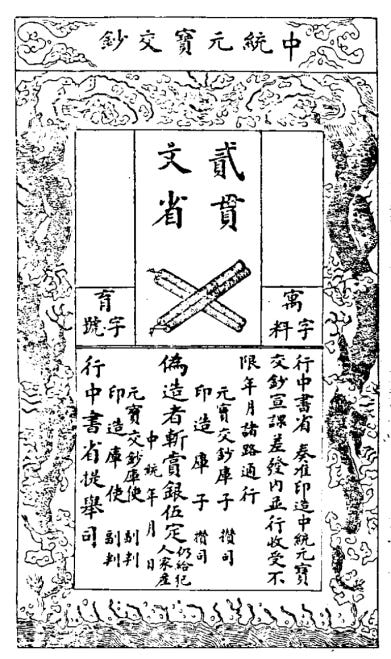 中統元寶交鈔
貳貫
文省
寓
字料
育
字號
行中書省 奏准印造中統元寶
交鈔宣課差發內並行收受不
限年月諸路通行
元寶交鈔庫子 攢司
印造庫子 攢司
偽造者斬賞銀伍定
仍給犯
人家產
中統年 月 日
元寶交鈔庫使 副判
印造庫使 副判
行中書省提舉司